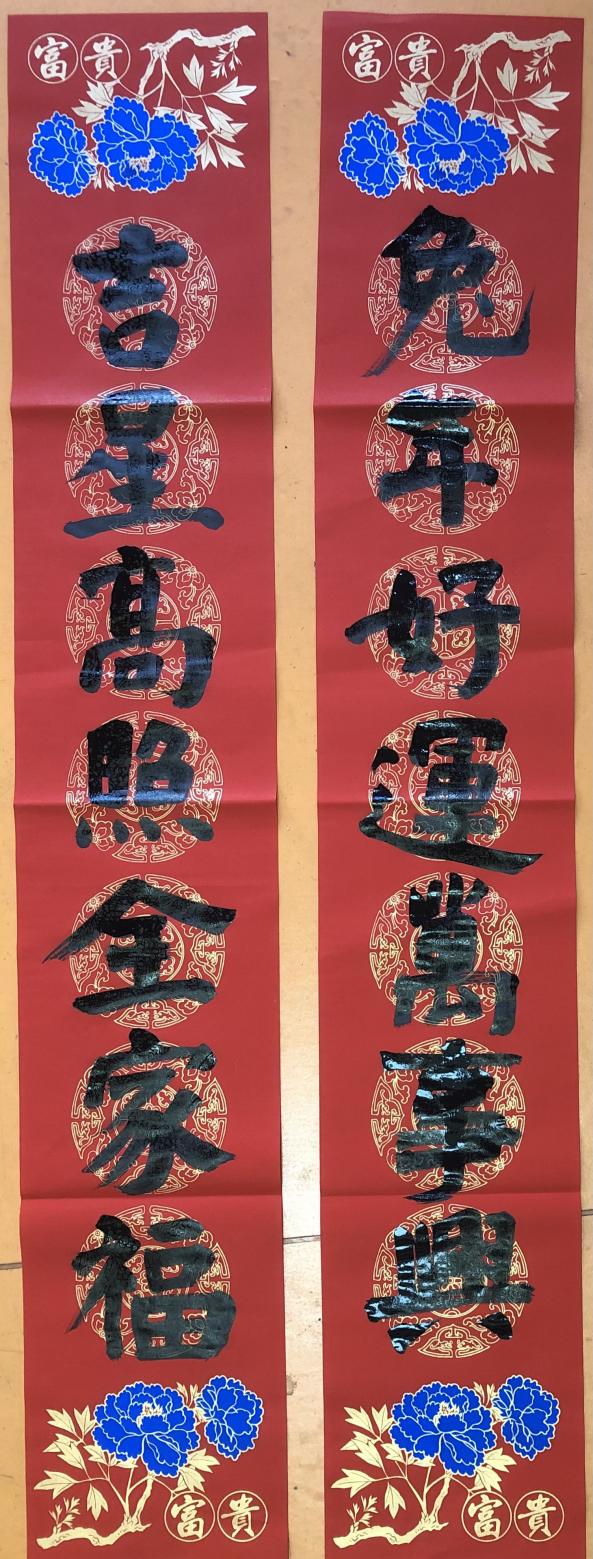 富貴
兔年好運萬事興
富貴
富貴
吉星高照全家福
富貴